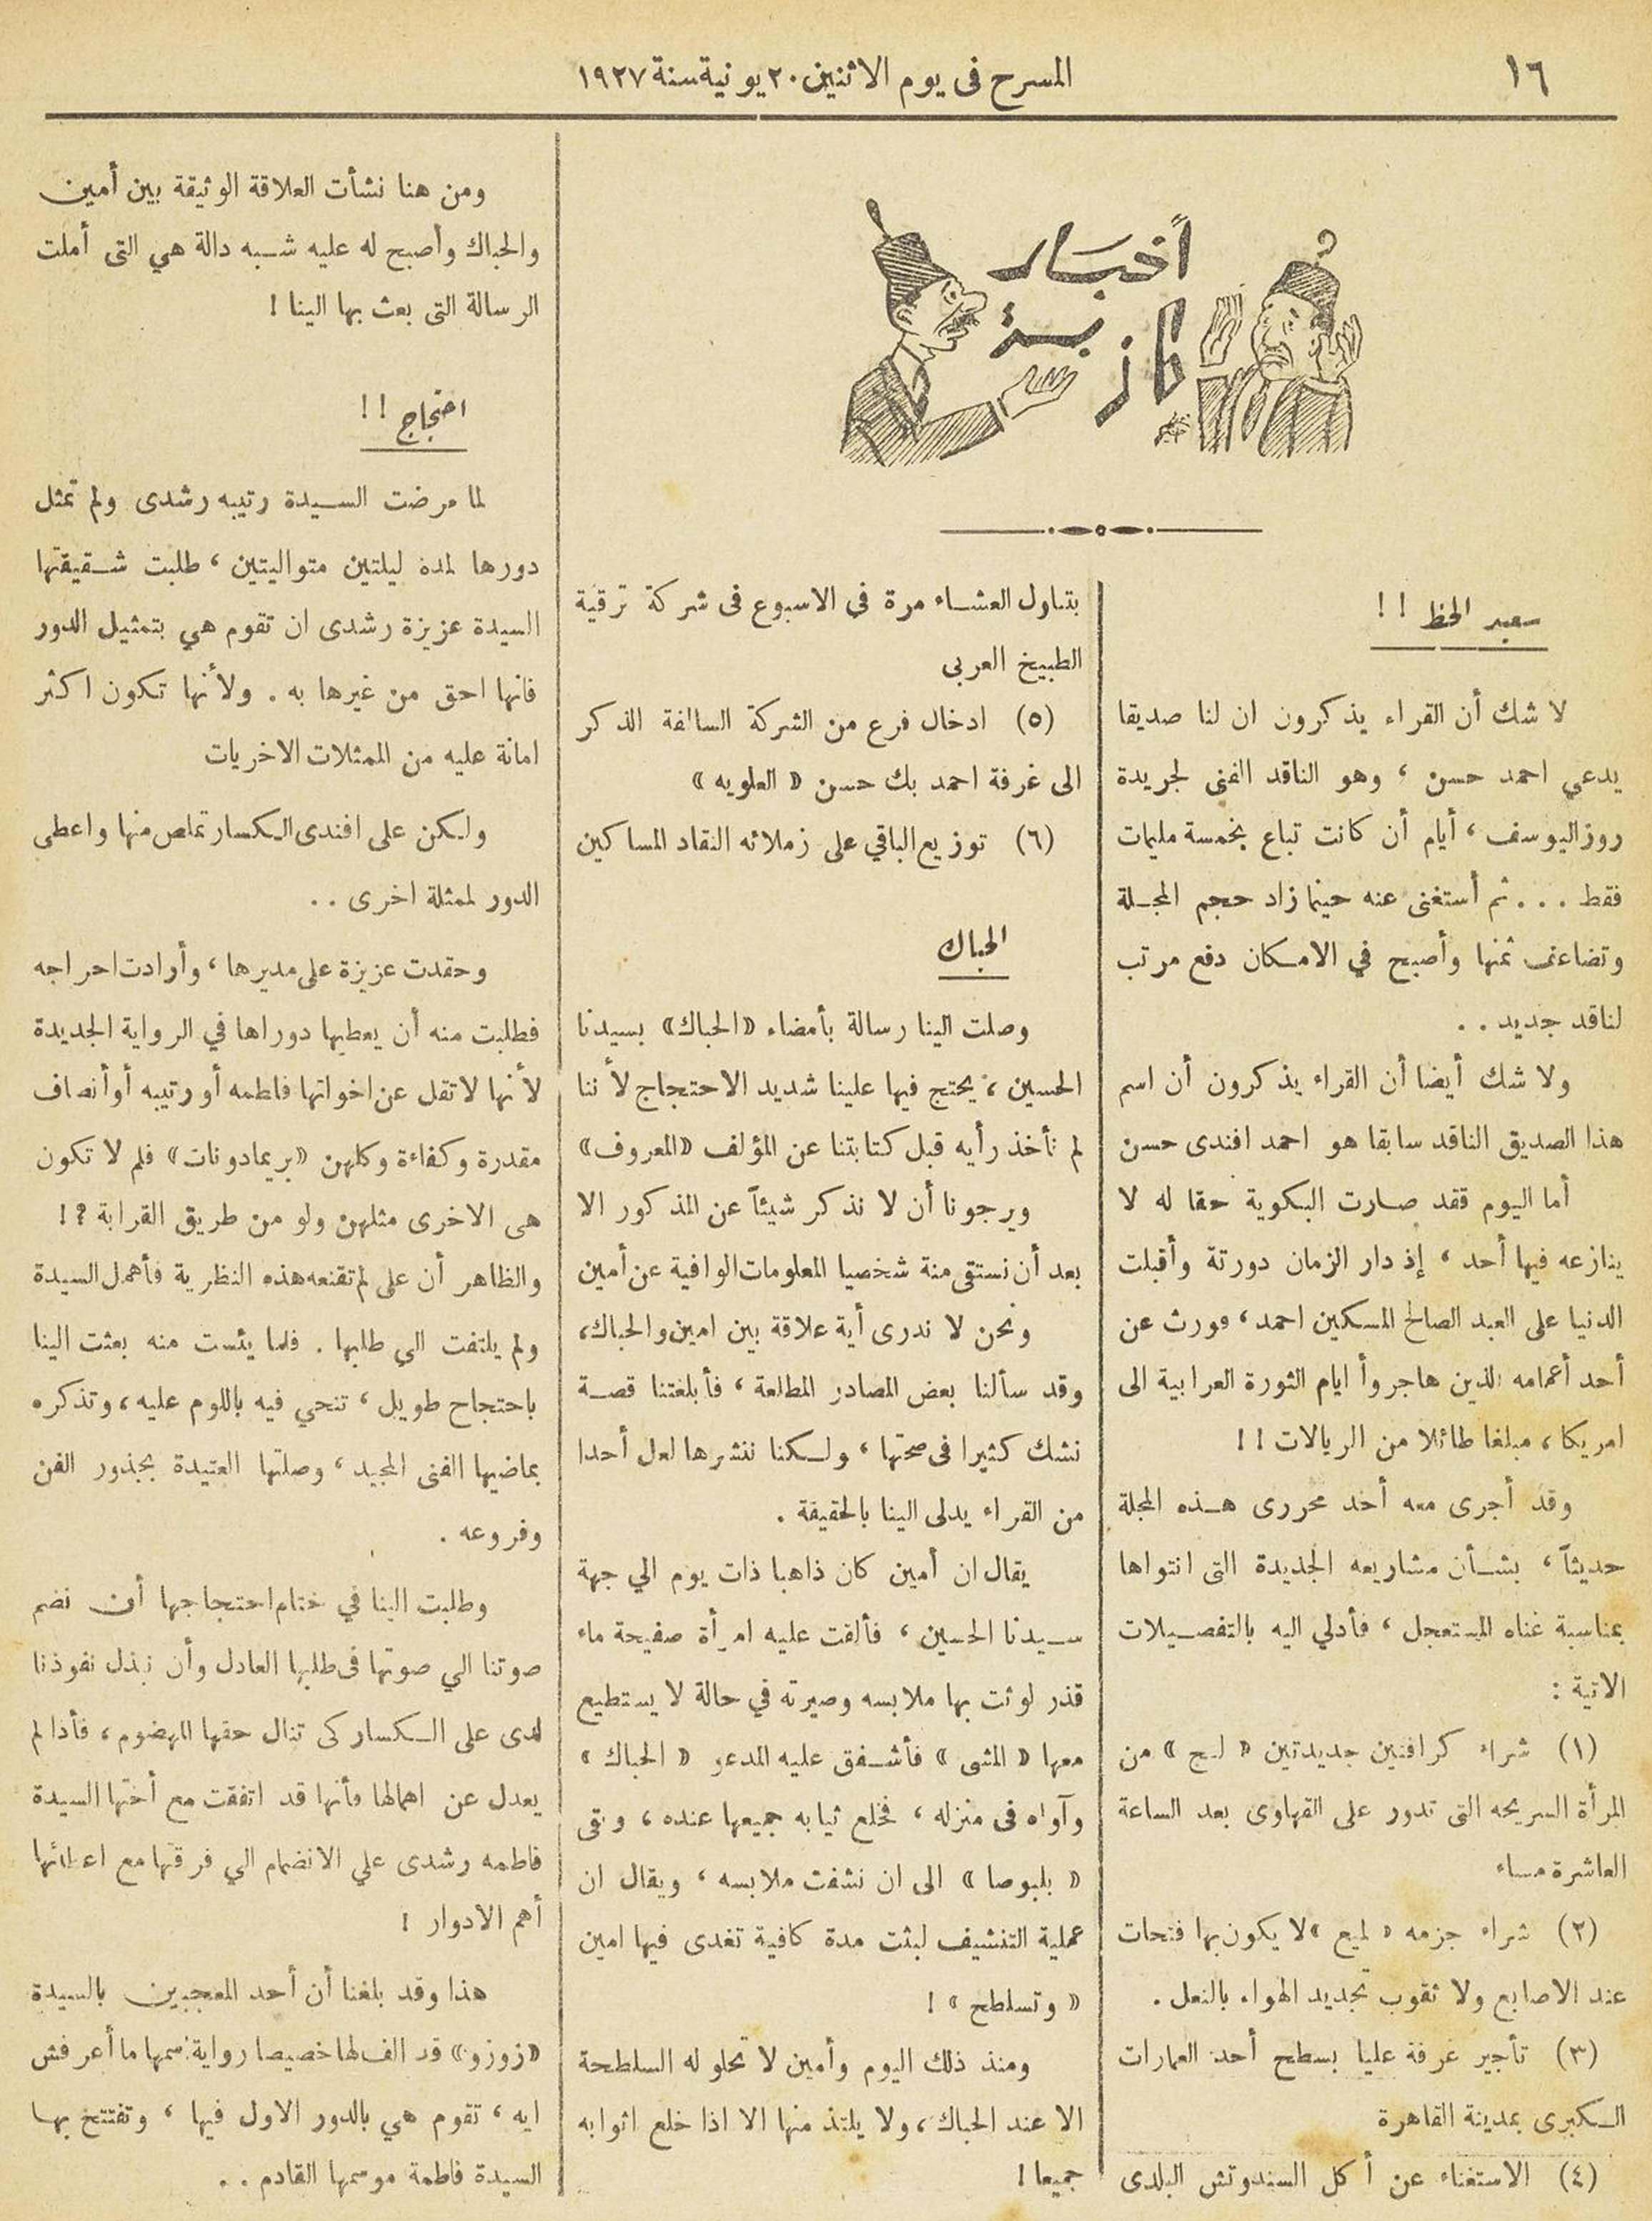 ١٦
المسرح فى يوم الاثنين ٢٠ يونية سنة ١٩٢٧
أخبار
كاذبة
سعيد الحظ !!
لا شك أن القراء يذكرون ان لنا صديقا
يدعي احمد حسن ، وهو الناقد الفنى لجريدة
روز اليوسف ، أيام أن كانت تباع بخمسة مليمات
فقط . . . ثم أستغنى عنه حينما زاد حجم المجلة
وتضاعف ثمنها وأصبح في الامكان دفع مرتب
لناقد جديد . .
ولا شك أيضا أن القراء يذكرون أن اسم
هذا الصديق الناقد سابقا هو احمد افندى حسن
أما اليوم فقد صارت البكوية حقا له لا
ينازعه فيها أحد ، إذ دار الزمان دورتة وأقبلت
الدنيا على العبد الصالح المسكين احمد ، فورث عن
أحد أعمامه الذين هاجروأ ايام الثورة العرابية الى
امريكا ، مبلغا طائلا من الريالات !!
وقد أجرى معه أحد محررى هذه المجلة
حديثاً ، بشأن مشاريعه الجديدة التى انتواها
بمناسبة غناه المستعجل ، فأدلي اليه بالتفصيلات
الاتية :
(١) شراء كرافتين جديدتين « لج » من
المرأة السريحه التى تدور على القهاوى بعد الساعة
العاشرة مساء
(٢) شراء جزمه « لميع » لا يكون بها فتحات
عند الاصابع ولا ثقوب تجديد الهواء بالنعل .
(٣) تأجير غرفة عليا بسطح أحد العمارات
الكبرى بمدينة القاهرة
(٤) الاستغناء عن أكل السندوتش البلدى
بتناول العشاء مرة في الاسبوع فى شركة ترقية
الطبيخ العربى
(٥) ادخال فرع من الشركة السالفة الذكر
الى غرفة احمد بك حسن « العلويه »
(٦) توزيع الباقي على زملائه النقاد المساكين
الحباك
وصلت الينا رسالة بأمضاء «الحباك» بسيدنا
الحسين ، يحتج فيها علينا شديد الاحتجاج لأننا
لم نأخذ رأيه قبل كتابتنا عن المؤلف «المعروف»
ويرجونا أن لا نذكر شيئاً عن المذكور الا
بعد أن نستقى منة شخصيا المعلومات الوافية عن أمين
ونحن لا ندرى أية علاقة بين امين والحباك،
وقد سألنا بعض المصادر المطلعة ، فأبلغتنا قصة
نشك كثيرا فى صحتها ، ولكنا ننشرها لعل أحدا
من القراء يدلى الينا بالحقيقة .
يقال ان أمين كان ذاهبا ذات يوم الي جهة
سيدنا الحسين ، فألقت عليه امرأة صفيحة ماء
قذر لوثت بها ملابسه وصيرته في حالة لا يستطيع
معها « المشى » فأشفق عليه المدعو « الحباك »
وآواه فى منزله ، فخلع ثيابه جميعها عنده ، وبقى
« بلبوصا » الى ان نشفت ملابسه ، ويقال ان
عملية التنشيف لبثت مدة كافية تغدى فيها امين
« وتسلطح » !
ومنذ ذلك اليوم وأمين لا تحلو له السلطحة
الا عند الحباك ، ولا يلتذ منها الا اذا خلع اثوابه
جميعا !
ومن هنا نشأت العلاقة الوثيقة بين أمين
والحباك وأصبح له عليه شبه دالة هي التى أملت
الرسالة التى بعث بها الينا !
احتجاج !!
لما مرضت السيدة رتيبه رشدى ولم تمثل
دورها لمدة ليلتين متواليتين ، طلبت شقيقتها
السيدة عزيزة رشدى ان تقوم هي بتمثيل الدور
فانها احق من غيرها به . ولأنها تكون اكثر
امانة عليه من الممثلات الاخريات
ولكن على افندى الكسار تملص منها واعطى
الدور لممثلة اخرى . .
وحقدت عزيزة على مديرها ، وأرادت احراجه
فطلبت منه أن يعطيها دوراها في الرواية الجديدة
لأنها لا تقل عن اخواتها فاطمه أو رتيبه أو أنصاف
مقدرة وكفاءة وكلهن «بريمادونات» فلم لا تكون
هى الاخرى مثلهن ولو من طريق القرابة ؟!
والظاهر أن على لم تقنعه هذه النظرية فأهمل السيدة
ولم يلتفت الي طلبها . فلما يئست منه بعثت الينا
باحتجاح طويل ، تنحي فيه باللوم عليه ، وتذكره
بماضيها الفنى المجيد ، وصلتها العتيدة بجذور الفن
وفروعه .
وطلبت الينا في ختام احتجاجها أن نضم
صوتنا الي صوتها فى طلبها العادل وأن نبذل نفوذنا
لدى على الكسار كى تنال حقها المهضوم ، فأذا لم
يعدل عن اهمالها فأنها قد اتفقت مع أختها السيدة
فاطمه رشدى علي الانضمام الي فرقتها مع اعطائها
أهم الادوار !
هذا وقد بلغنا أن أحد المعجبين بالسيدة
«زوزو» قد الف لها خصيصا رواية اسمها ما أعرفش
ايه ، تقوم هي بالدور الاول فيها ، وتفتتح بها
السيدة فاطمة موسمها القادم . .